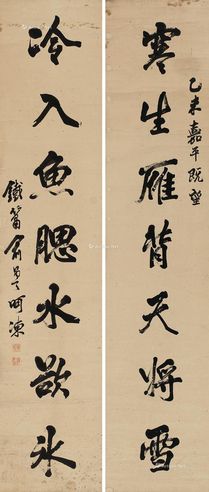 乙未嘉平既望
寒生雁背天将雪
冷入魚腮水欲冰
鐵笛俞
呵凍